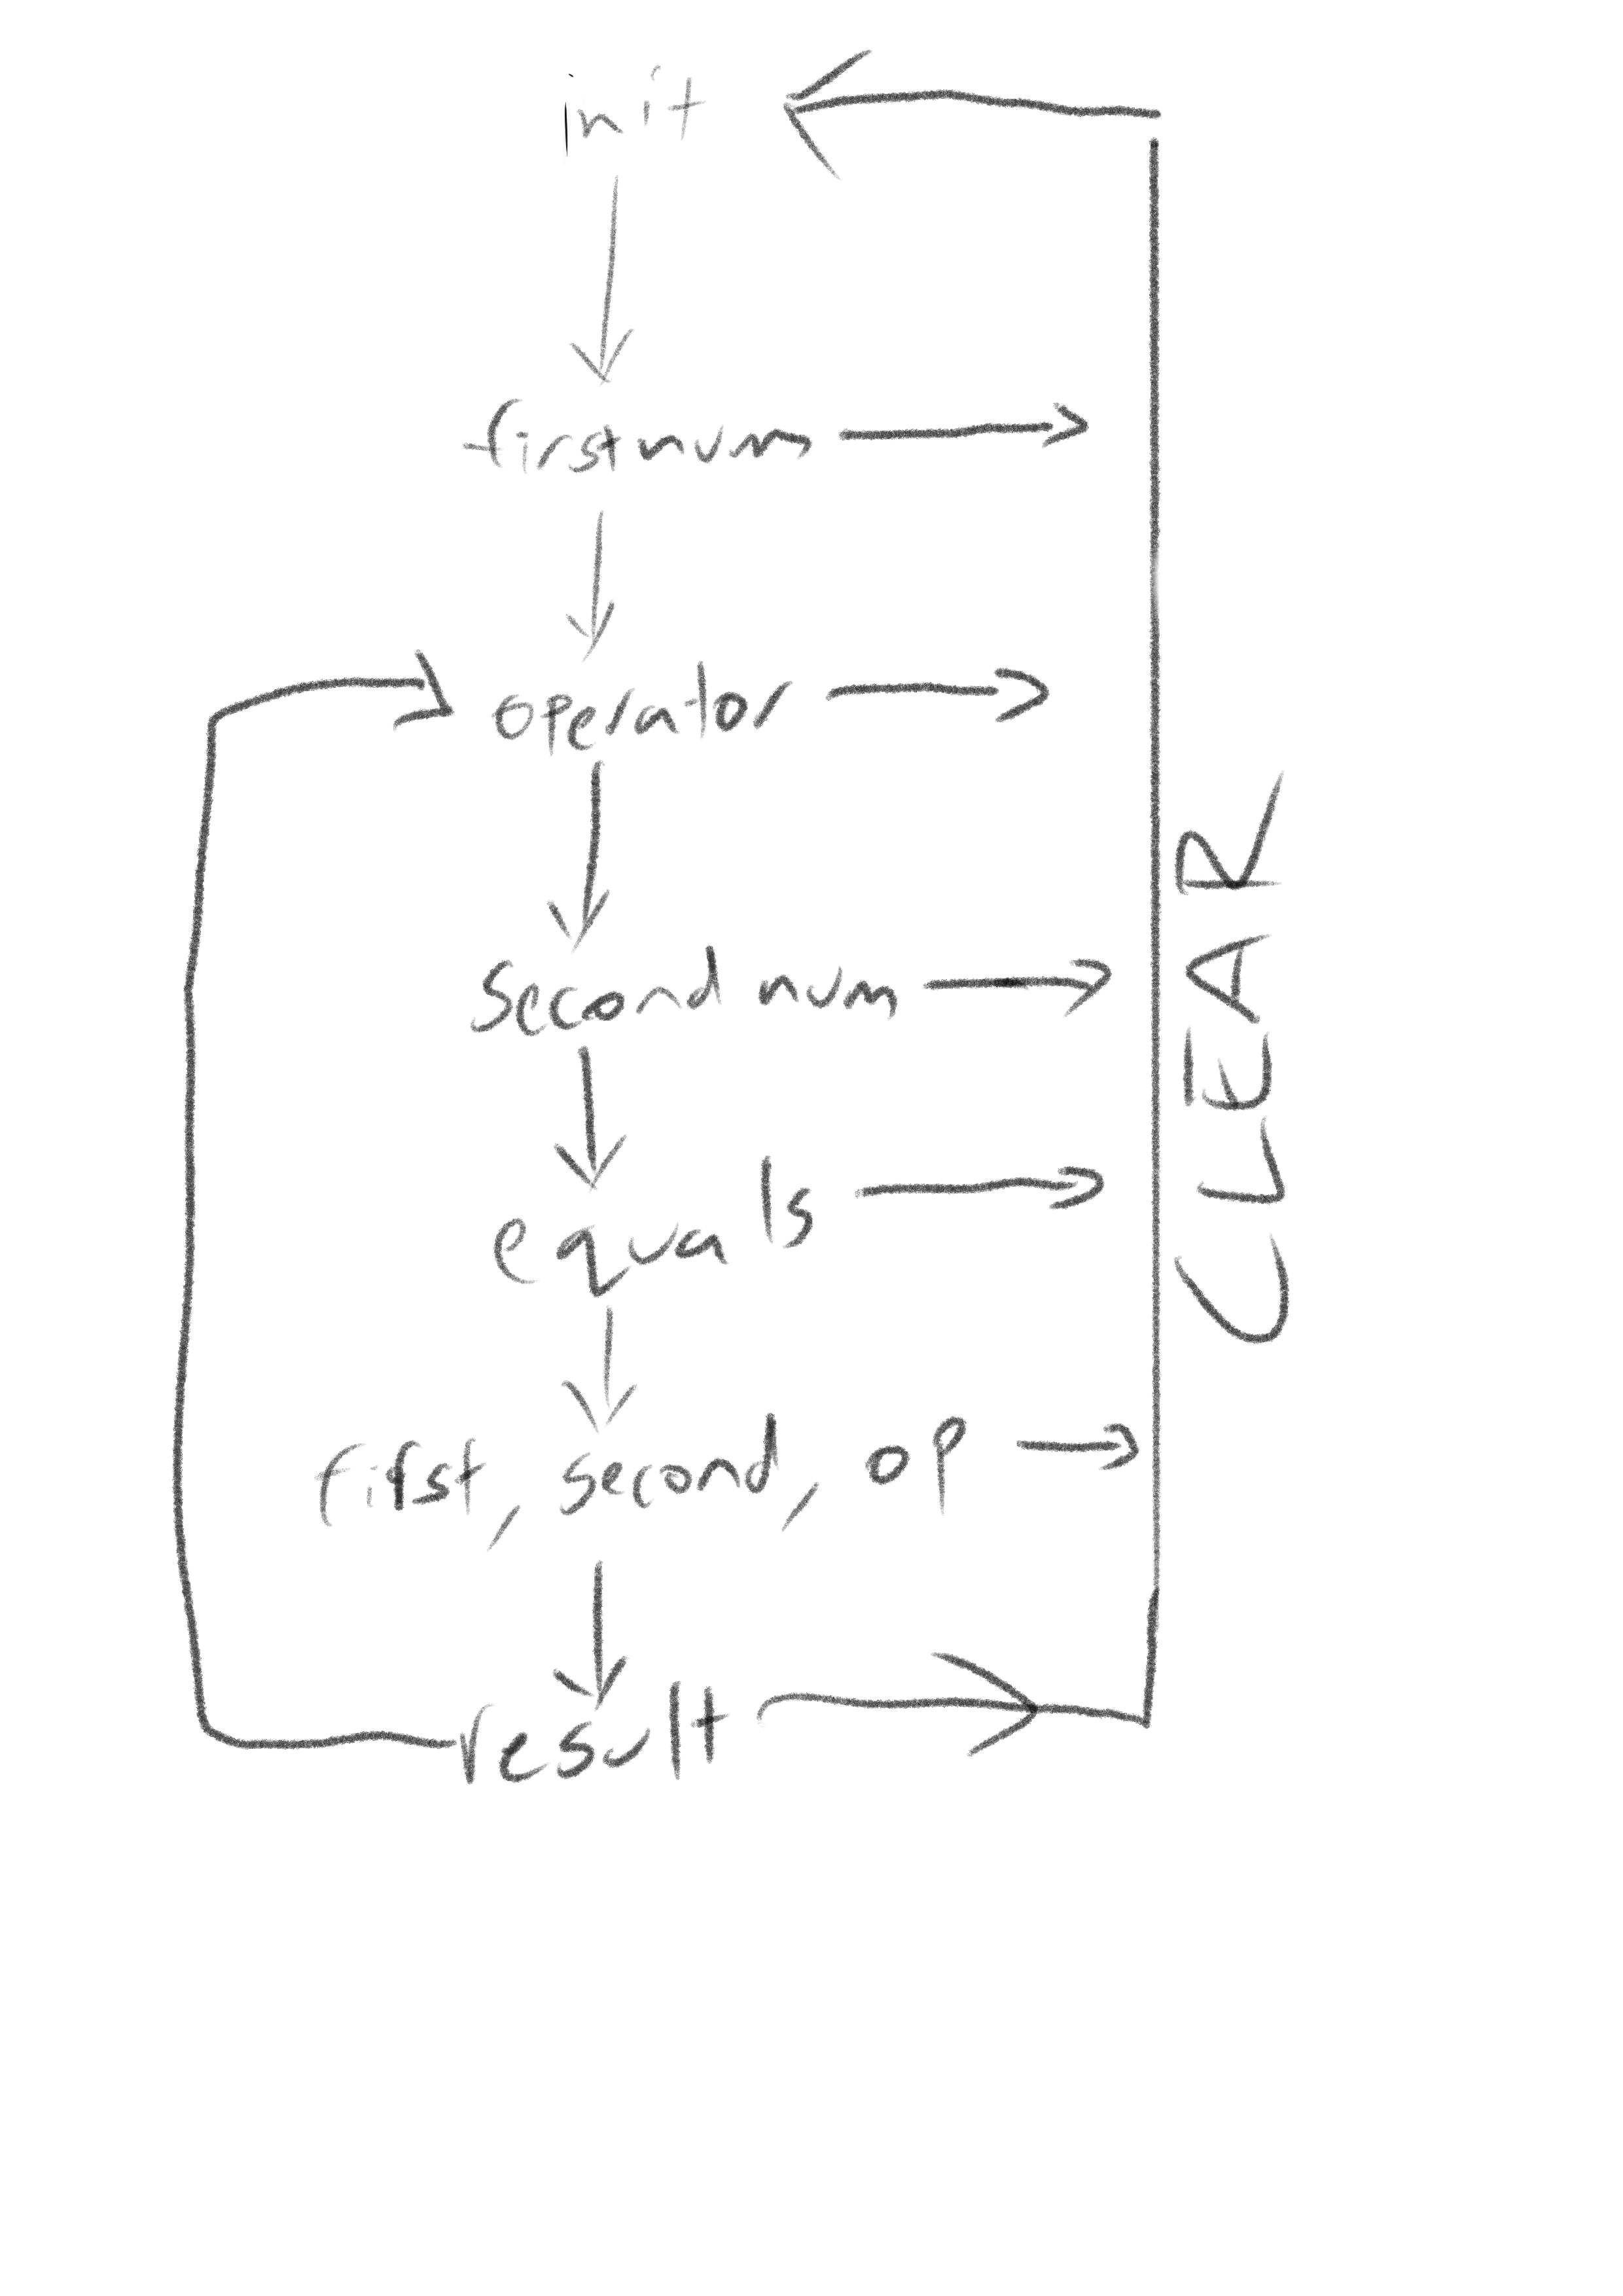 init
firstnum
operator
second num
equals
first, second, op
result
CLEAR